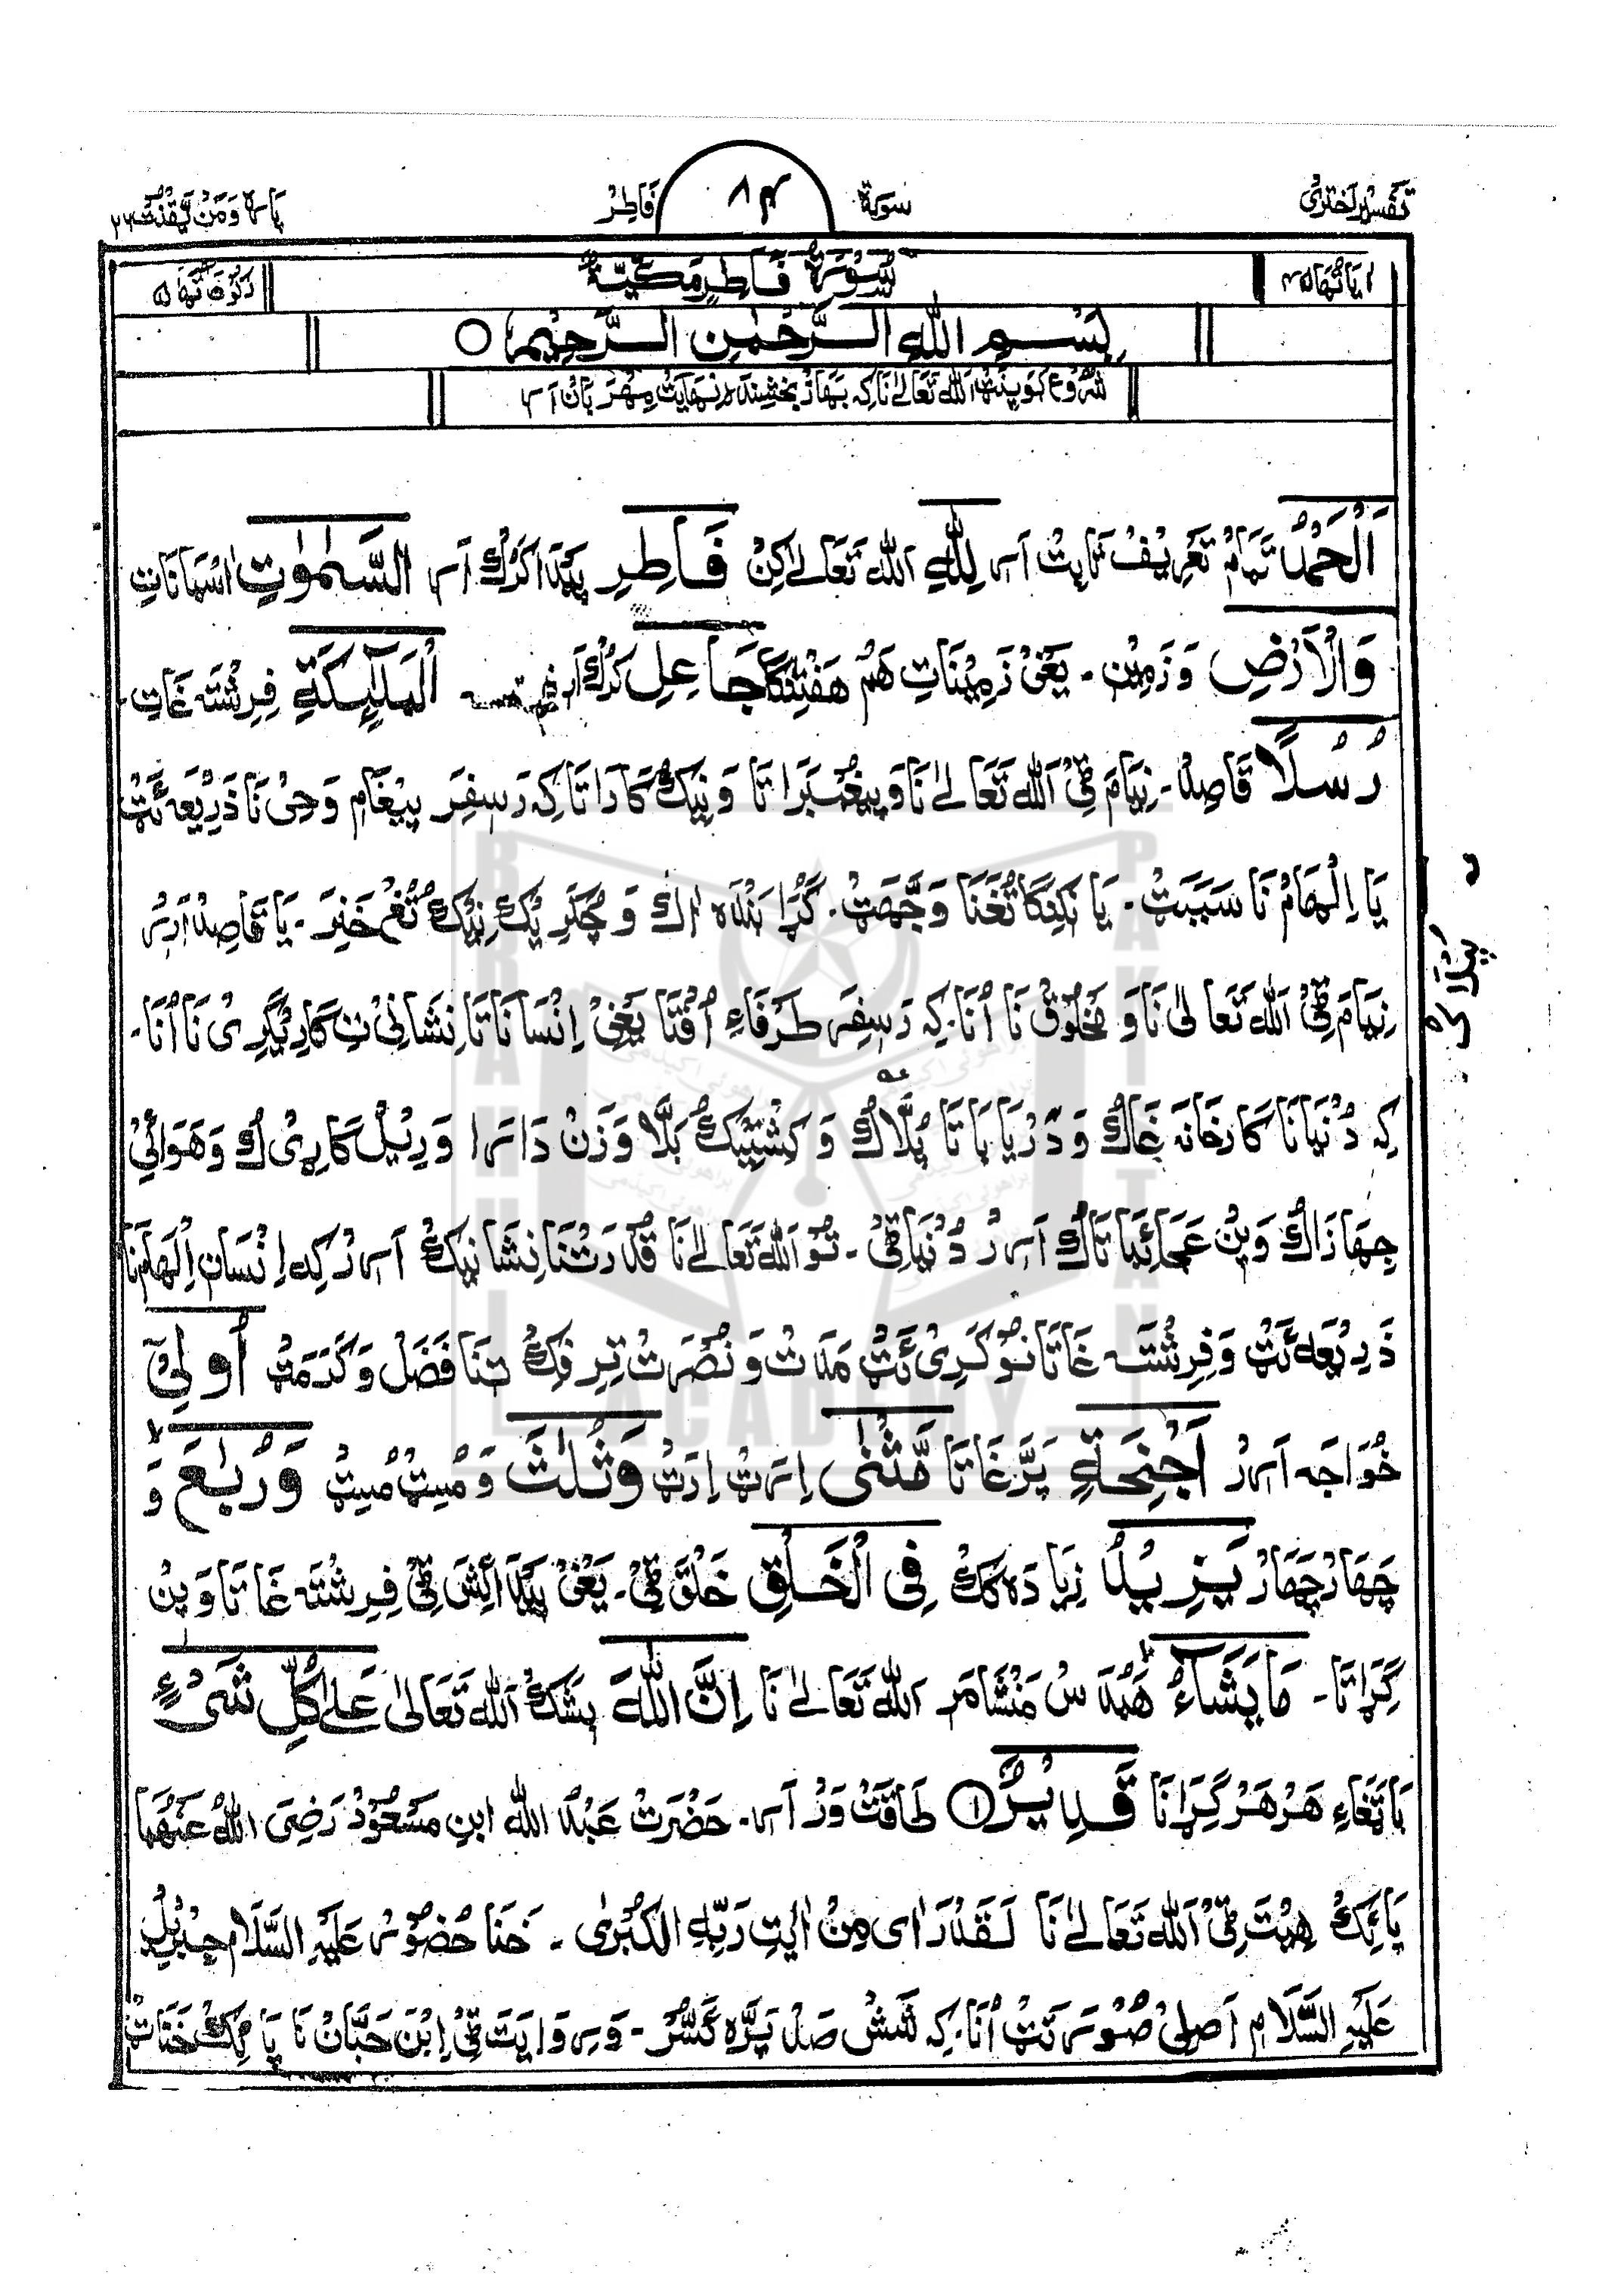 تفسیر اختری
سورة
۷۸۴
فَاطِرْ
پارہ وَمَنْ یَّقْنُتْ ۲۲
اٰیَاتُهَا ۴۵
سُوْرَةُ فَاطِرٍ مَكِّيَّةٌ
رُكُوْعَاتُهَا ۵
بِسْمِ اللّٰهِ الرَّحْمٰنِ الرَّحِيْمِ ○
شُرُوْع کیوہ پنٹ اَللہ تَعَالےٰ نَا کِہ بَھَازْ بَخْشِنْدَہ نِہَایَتْ مِہْرَبَان اَرے
اَلْحَمْدُ تَمَامْ تَعْرِیفْ ثَابِتْ اَرے لِلّٰهِ اَللہ تَعَالےٰ کِنْ فَاطِرِ پَیْدَا کَرُکْ اَرے السَّمٰوٰتِ اٰسْمَانَاتِ
وَالْاَرْضِ وَ زَمِیْن ۔ یَعْنِیْ زَمِیْنَاتِ ہَمْ ہَفْتِنْگَا جَاعِلِ کَرُکْ اَرے الْمَلٰٓئِكَةِ فِرِشْتَہ غَاتِ ۔
رُسُلًا قَاصِدْ ۔ نِیَامَ ٹِیْ اَللہ تَعَالےٰ نَا وَ پِیْغَمْبَرَاتَا وَ نِیْکْ کَارَاتَا کِہ رَسِفِرَ پِیْغَامِ وَحِیْ نَا ذَرِیْعَہ ئَٹْ
یَا اِلْہَامْ نَا سَبَبَٹْ ۔ یَا نِیْکِنْگَا تُغَنَا وَجْہَٹْ ۔ گُڑَا بَنْدَہ اٰکْ وَ چُنْدِیْکْ نِیْکْ تُغْ خَنِرَ ۔ یَا قَاصِدْ اَرِرْ
نِیَامَ ٹِیْ اَللہ تَعَالٰی نَا وَ مَخْلُوْقْ نَا اُنَا ۔ کِہ رَسِفِرَ طَرْفَاءِ اُفْتَا یَعْنِیْ اِنْسَانَاتَا نِشَانِیْ تِ کَارِیْگَرِیْ نَا اُنَا ۔
کِہ دُنْیَانَا کَارْخَانَہ غَاکْ وَ دَرْیَابَاتَا پُلَّاکْ وَ کِشْتِیْکْ بَلَّا وَزَنْ دَارَا وَ رِیْلْ گَاڑِیْ کْ وَ ہَوَائِیْ
پُلّاک
جِہَازَاکْ وَپِنْ عَجَائِبَاتَاکْ اَرِرْ دُنْیَاٹِیْ ۔ تَوْ اَللہ تَعَالےٰ نَا قُدْرَتْنَا نِشَانِیْکْ اَرِرْ کِہ اِنْسَانِ اِلْہَامْنَا
ذَرِیْعَہ ئَٹْ وَ فِرِشْتَہ غَاتَا نَوْکَرِیْ ئَٹْ مَدَتْ وَ نُصْرَتْ تِرِفِکْ تِنَا فَضَلْ وَ کَرَمَٹْ اُولِیْٓ
خُوَاجَہ اَرِرْ اَجْنِحَةٍ پَرَّغَاتَا مَّثْنٰى اِرَٹْ اِرَٹْ وَثُلٰثَ وَ مُسِٹْ مُسِٹْ وَرُبٰعَ وَ
چَہَارْ چَہَارْ يَزِيْدُ زِیَادَہ کِکْ فِي الْخَلْقِ خَلْقَ ٹِیْ ۔ یَعْنِیْ پَیْدَائِشَ ٹِیْ فِرِشْتَہ غَاتَا وَپِنْ
گِڑَاتَا ۔ مَا يَشَاءُ ہَمْدَ سْ مَنْشَامَرِ اَللہ تَعَالےٰ نَا اِنَّ اللّٰهَ بِشَکْ اَللہ تَعَالٰی عَلٰى كُلِّ شَيْءٍ
بَا تَغَاءِ ہَرْ ہَرْ گِڑَانَا قَدِيْرٌ ① طَاقَتْ وَرْ اَرے ۔ حَضْرَتْ عَبْدُ اللہ ابنِ مَسْعُوْدْ رَضِیَ اللہُ عَنْهُمَا
پَائِکْ ہِیْتَ ٹِیْ اَللہ تَعَالےٰ نَا لَقَدْ رَاٰى مِنْ اٰيٰتِ رَبِّهِ الْكُبْرٰى ۔ خَنَا حُضُوْر عَلَیْہِ السَّلَام جِبْرِیْلِ
عَلَیْہِ السَّلَام اَصْلِیْ صُوْرَتَٹْ اُنَا ۔ کِہ شَشْ صَدْ پَرَّہ کَسَّرْ ۔ وَ رِوَایَتَ ٹِیْ اِبْنِ حَبَّانْ نَا پَائِکْ خَنَاتْ
BRAHUI ACADEMY PAKISTAN